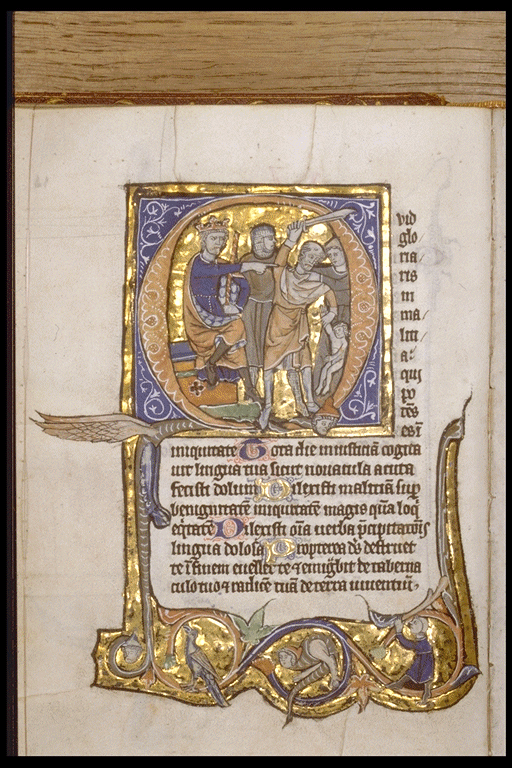 Q
uid
glo
ria
ris
in
ma
liti
a
qui
po
tēs
es ī
iniquitate Tota die iniusticiā cogita
uit lingua tua sicut nouacula acuta
fecisti dolum Dilexisti maliciam sup̄
benignitatem iniquitatē magis quā loq̄
eq̄tatē Dilexisti oīa uerba p̄cipitatōīs
lingua dolosa Propterea dс̄ destruet
te ī finem euellet te ⁊ emigᵃbit te de taberna
culo tuo ⁊ radicē tuā de terra uiuentiū